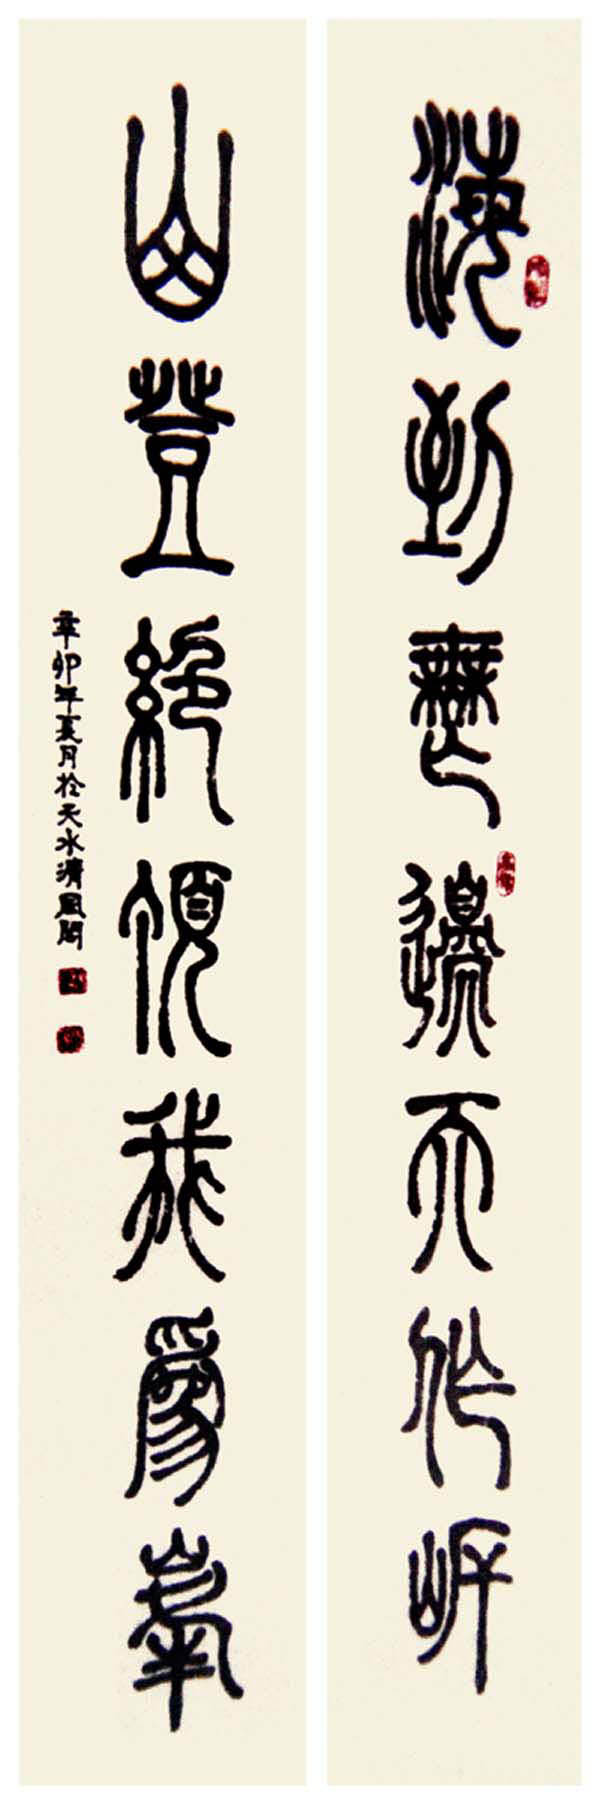 海到無邊天作岸
山登絕頂我為峯
辛卯年夏月於天水清風閣